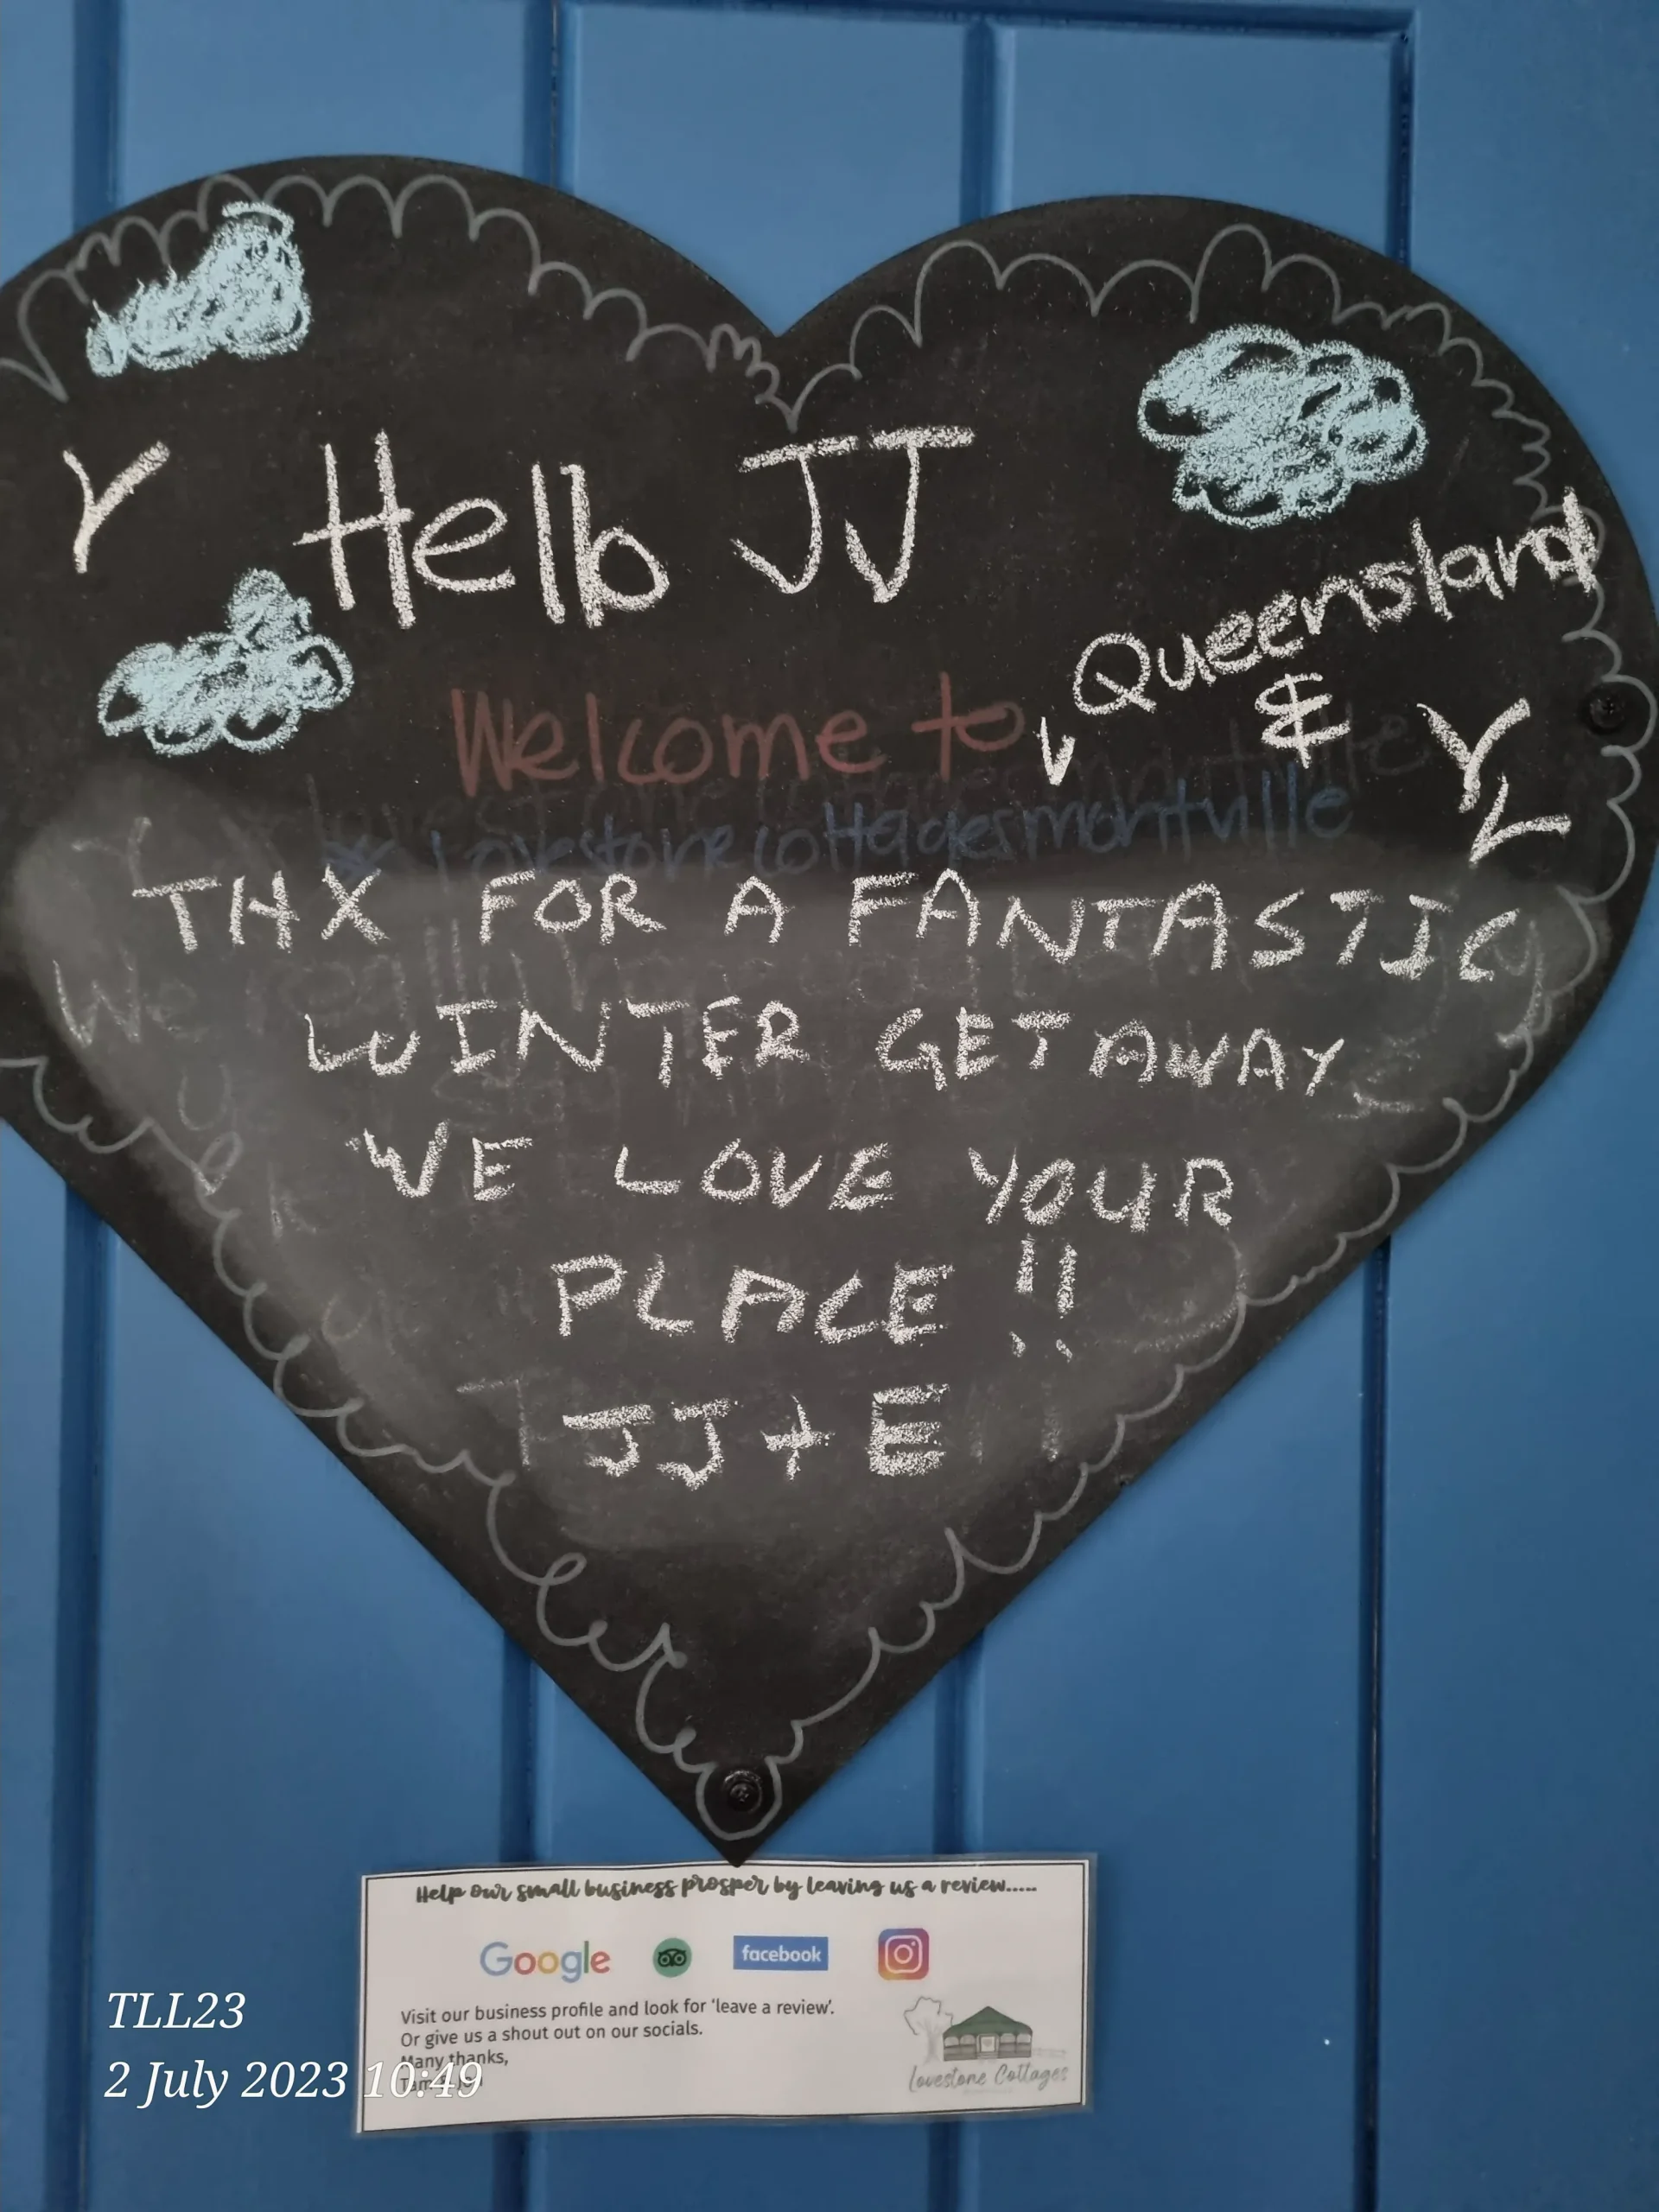 Hello JJ
Queensland
&
Welcome to
Lovestonecottagesmontville
THX FOR A FANTASTIC
WINTER GETAWAY
WE LOVE YOUR
PLACE !!
JJ + E
Help our small business prosper by leaving us a review.....
Google facebook
Visit our business profile and look for 'leave a review'.
Or give us a shout out on our socials.
Many thanks,
Lovestone Cottages
TLL23
2 July 2023 10:49